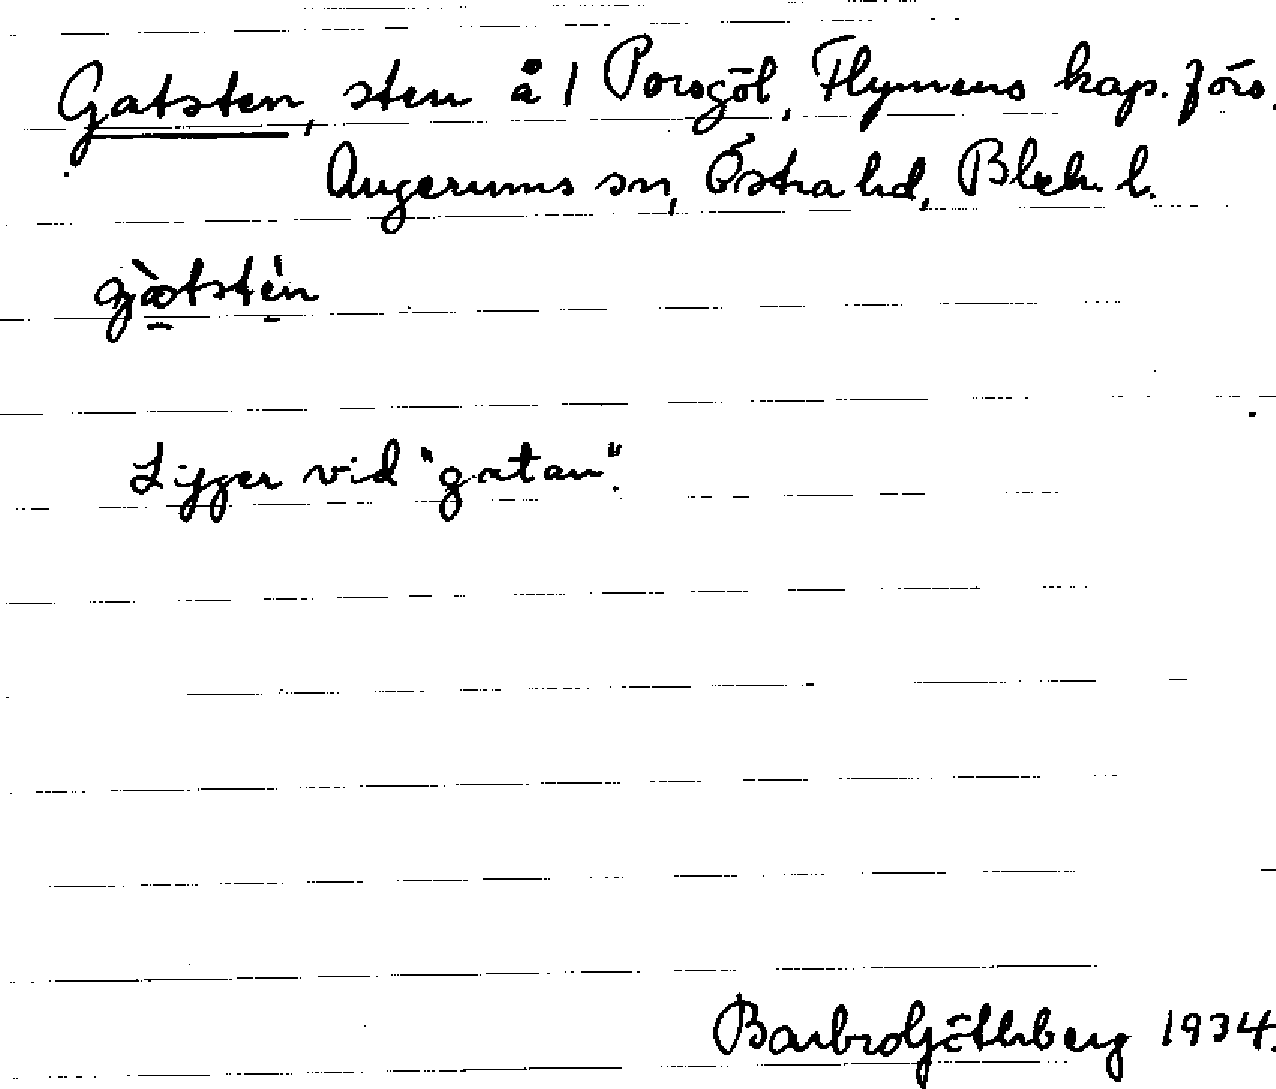 Gatsten, sten å 1 Porsgöl, Flymens kap. förs.
Augerums sn, Östra hd, Blek. l.
gàtstén
Ligger vid "gatan".
Barbro Göthberg 1934.